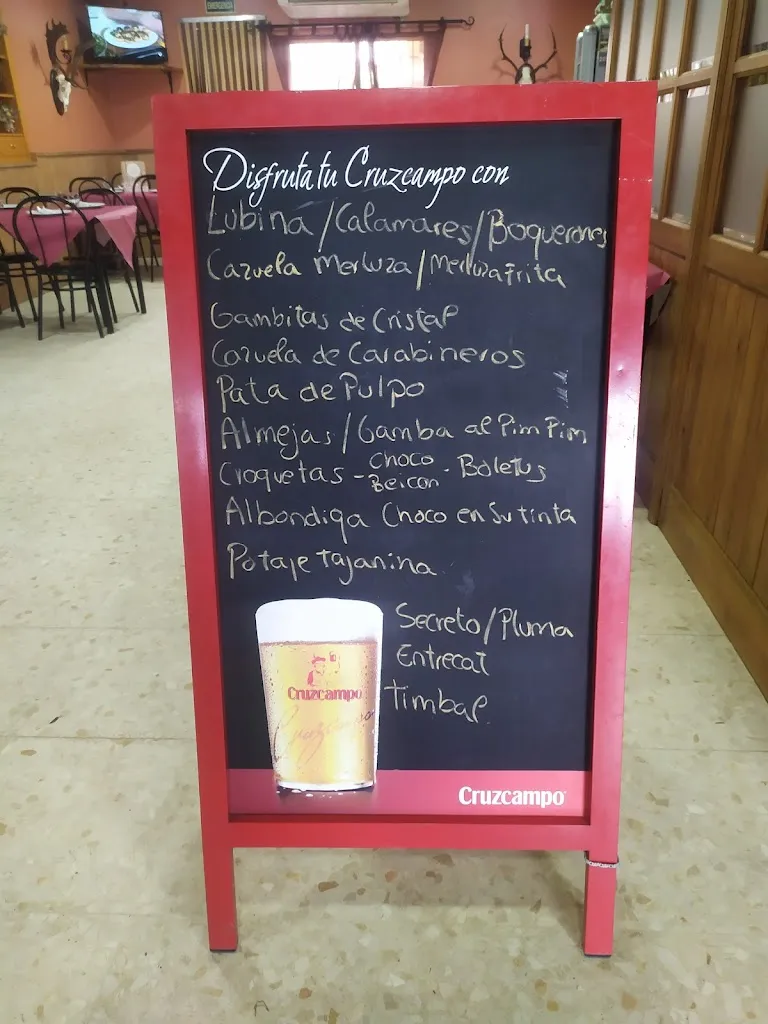 EMERGENCIA
Disfruta tu Cruzcampo con
Lubina/Calamares/Boquerones
Cazuela Merluza/Merluza Frita
Gambitas de Cristal
Cazuela de Carabineros
Pata de Pulpo
Almejas/Gamba al Pim Pim
Croquetas - Choco Beicon - Boletus
Albondiga Choco en Su tinta
Potaje tajanina
Secreto/Pluma
Entrecat
timbal
Cruzcampo
Cruzcampo
Cruzcampo